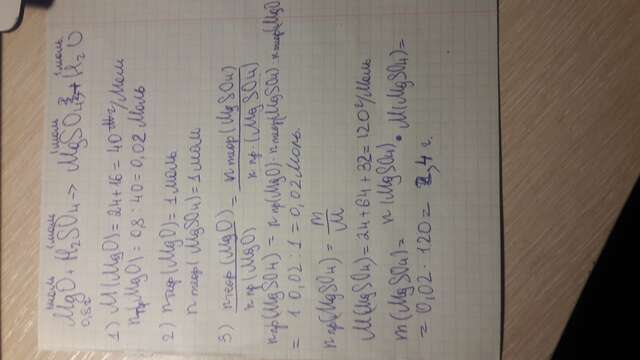 1 моль 1 моль 1 моль 1 моль
MgO + H₂SO₄ → MgSO₄ + H₂O
0,8 г
1) M(MgO) = 24 + 16 = 40 г/моль
n пр(MgO) = 0,8 : 40 = 0,02 моль
2) n теор(MgO) = 1 моль
n теор(MgSO₄) = 1 моль
3) n теор(MgO) / n пр(MgO) = n теор(MgSO₄) / n пр(MgSO₄)
n пр(MgSO₄) = n пр(MgO) · n теор(MgSO₄) : n теор(MgO)
= 1 · 0,02 : 1 = 0,02 моль.
n пр(MgSO₄) = m / M
M(MgSO₄) = 24 + 64 + 32 = 120 г/моль
m(MgSO₄) = n(MgSO₄) · M(MgSO₄) =
= 0,02 · 120 = 2,4 г.